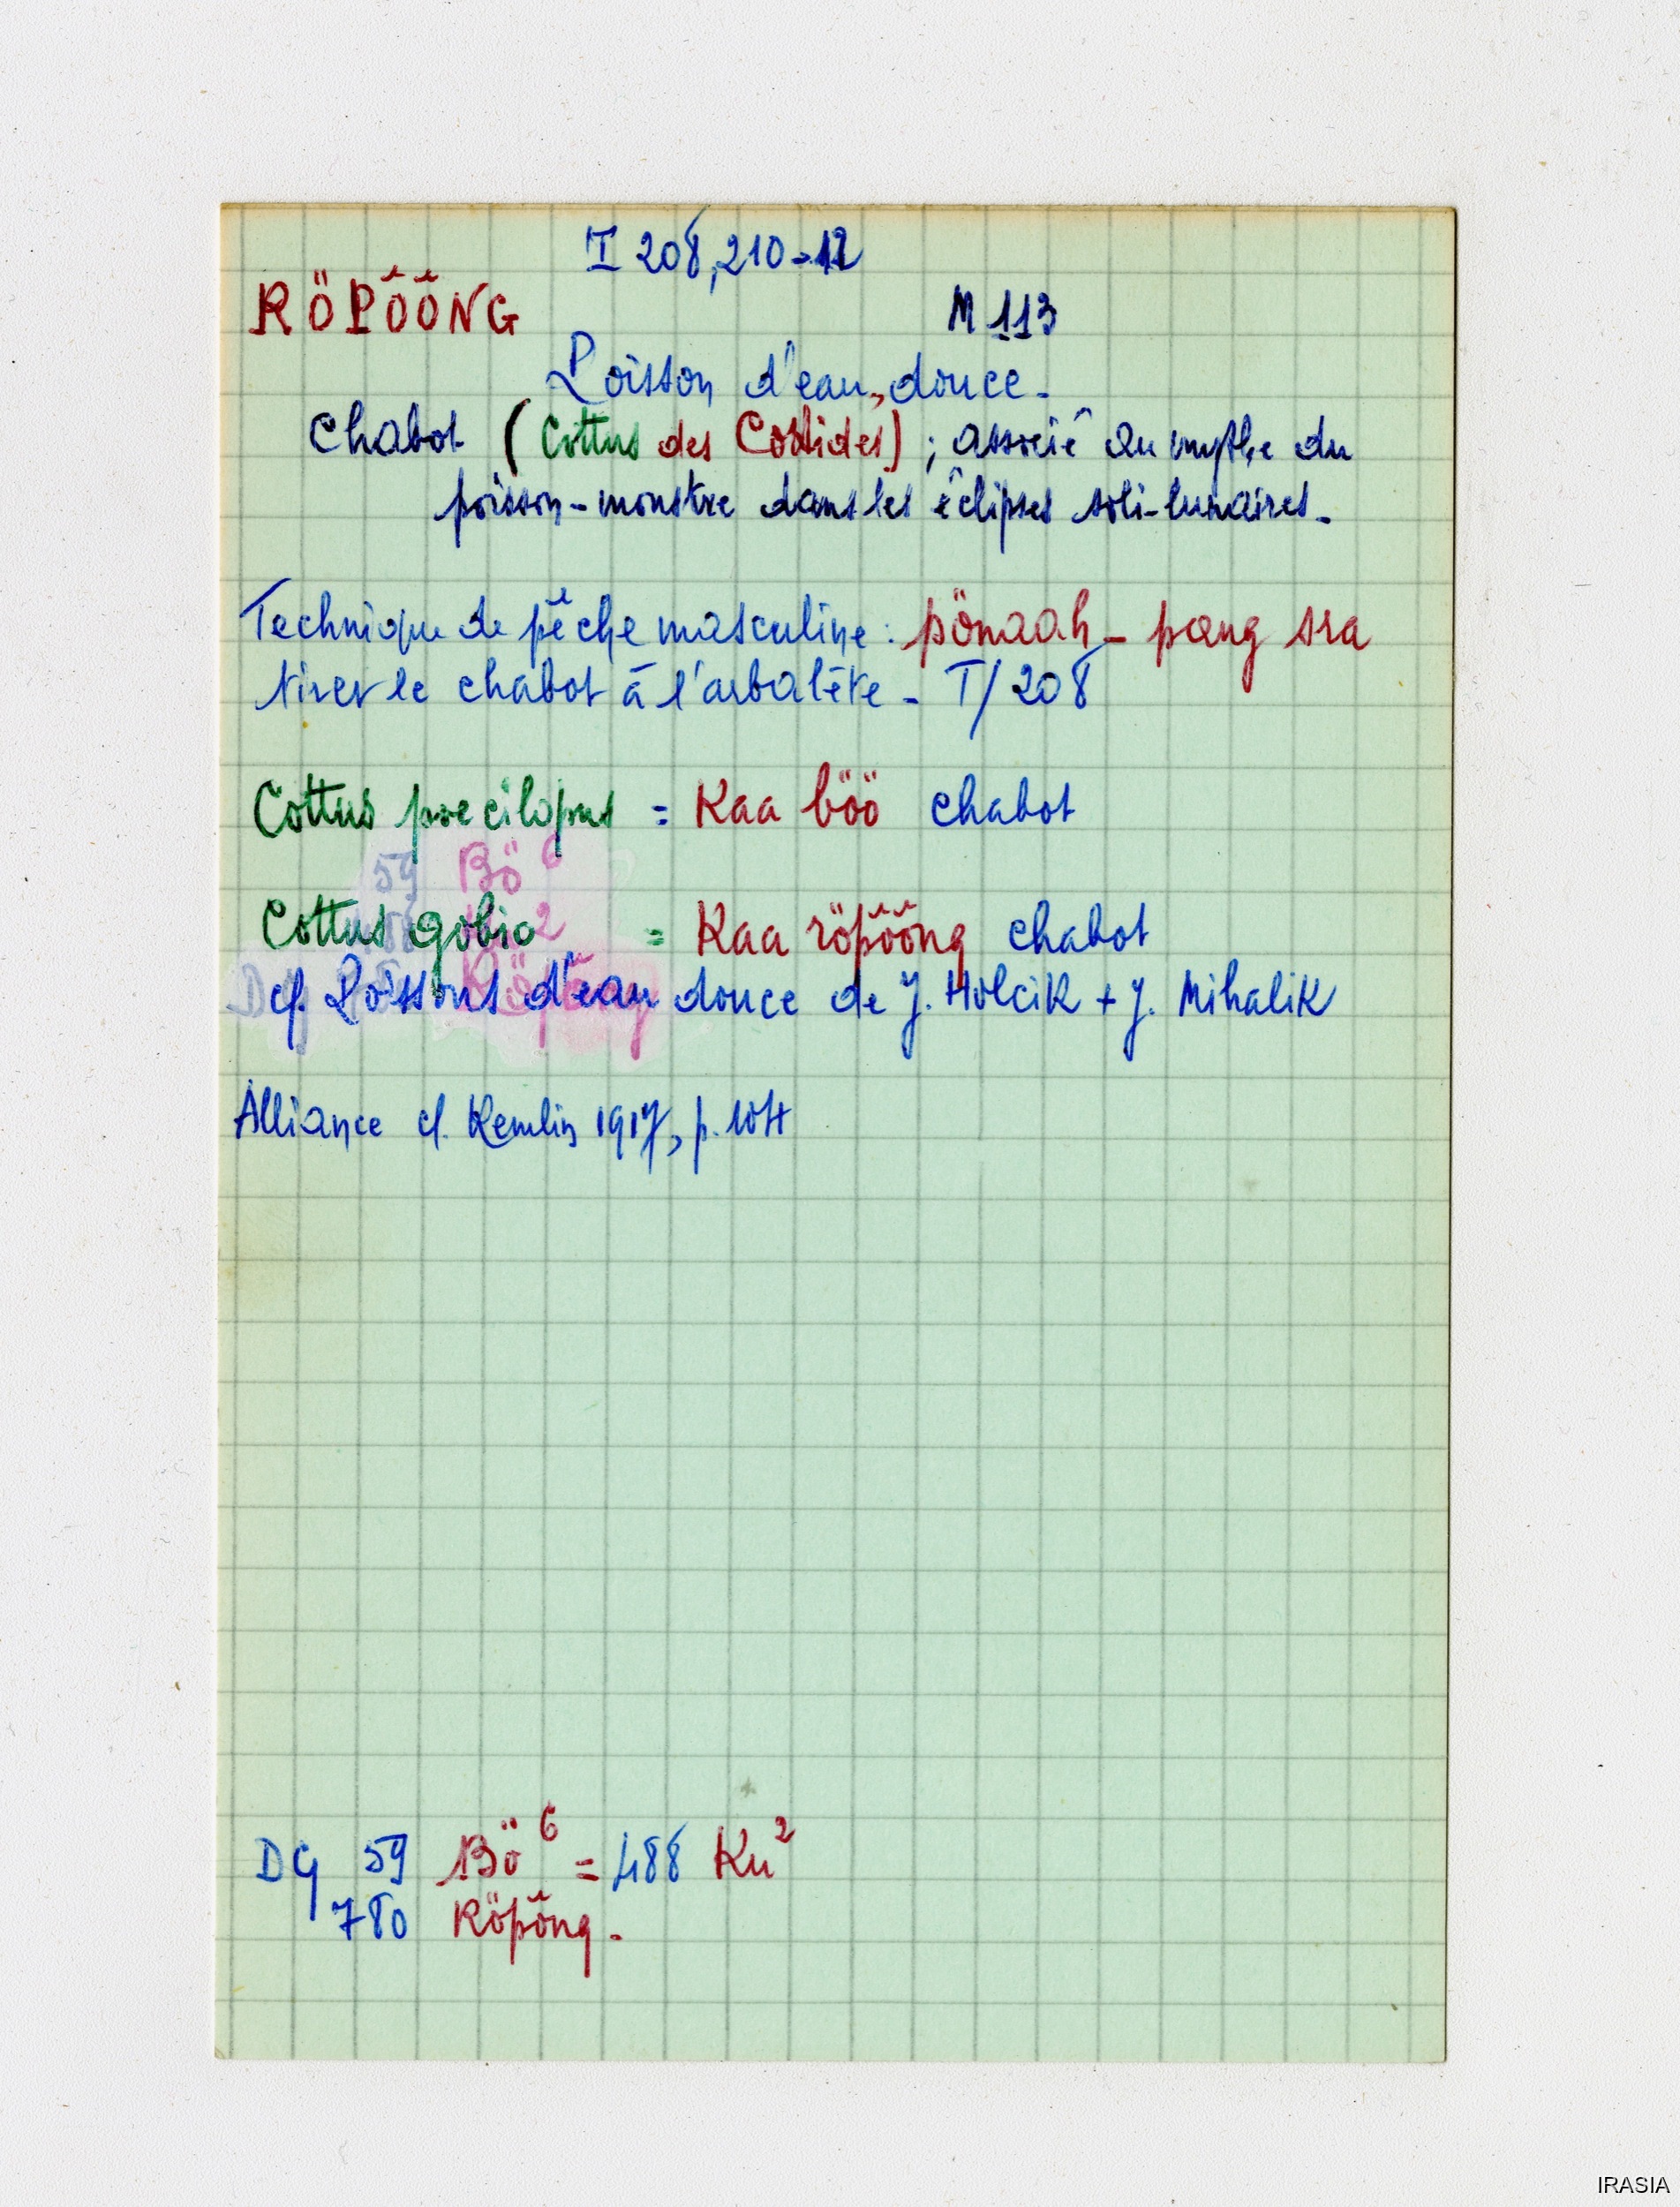 I 208, 210-12
RÖPÔ̆Ô̆NG
M 113
Poisson d'eau douce.
Chabot (Cottus des Cottidés) ; associé au mythe du
poisson-monstre dans les éclipses soli-lunaires.
Technique de pêche masculine : pönaah - pang sra
tirer le chabot à l'arbalète - T/208
Cottus poecilopus = Kaa böö chabot
59 Bö 6
Cottus gobio = Kaa röpô̆ô̆ng chabot
cf. Poissons d'eau douce de J. Holcik + J. Mihalik
Alliance cf. Kemlin 1917, p. 104
DG 59 Bö 6 = 488 Ku 2
780 Röpô̆ng.
IRASIA